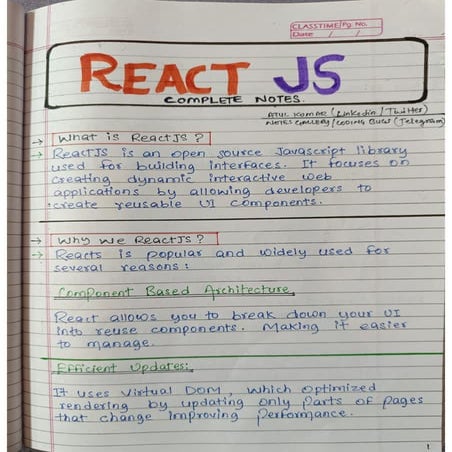 CLASSTIME Pg. No.
Date / /
REACT JS
COMPLETE NOTES.
ATUL KUMAR (LinkedIn / Twitter)
NOTES GALLERY / CODING BUGS (Telegram)
→ What is ReactJS ?
→ ReactJS is an open source Javascript library
used for building interfaces. It focuses on
creating dynamic interactive web
applications by allowing developers to
create reusable UI components.
→ Why we ReactJS ?
→ Reacts is popular and widely used for
several reasons :
Component Based Architecture
React allows you to break down your UI
into reuse components. Making it easier
to manage.
Efficient Updates:
It uses virtual DOM, which optimized
rendering by updating only parts of pages
that change improving performance.
1